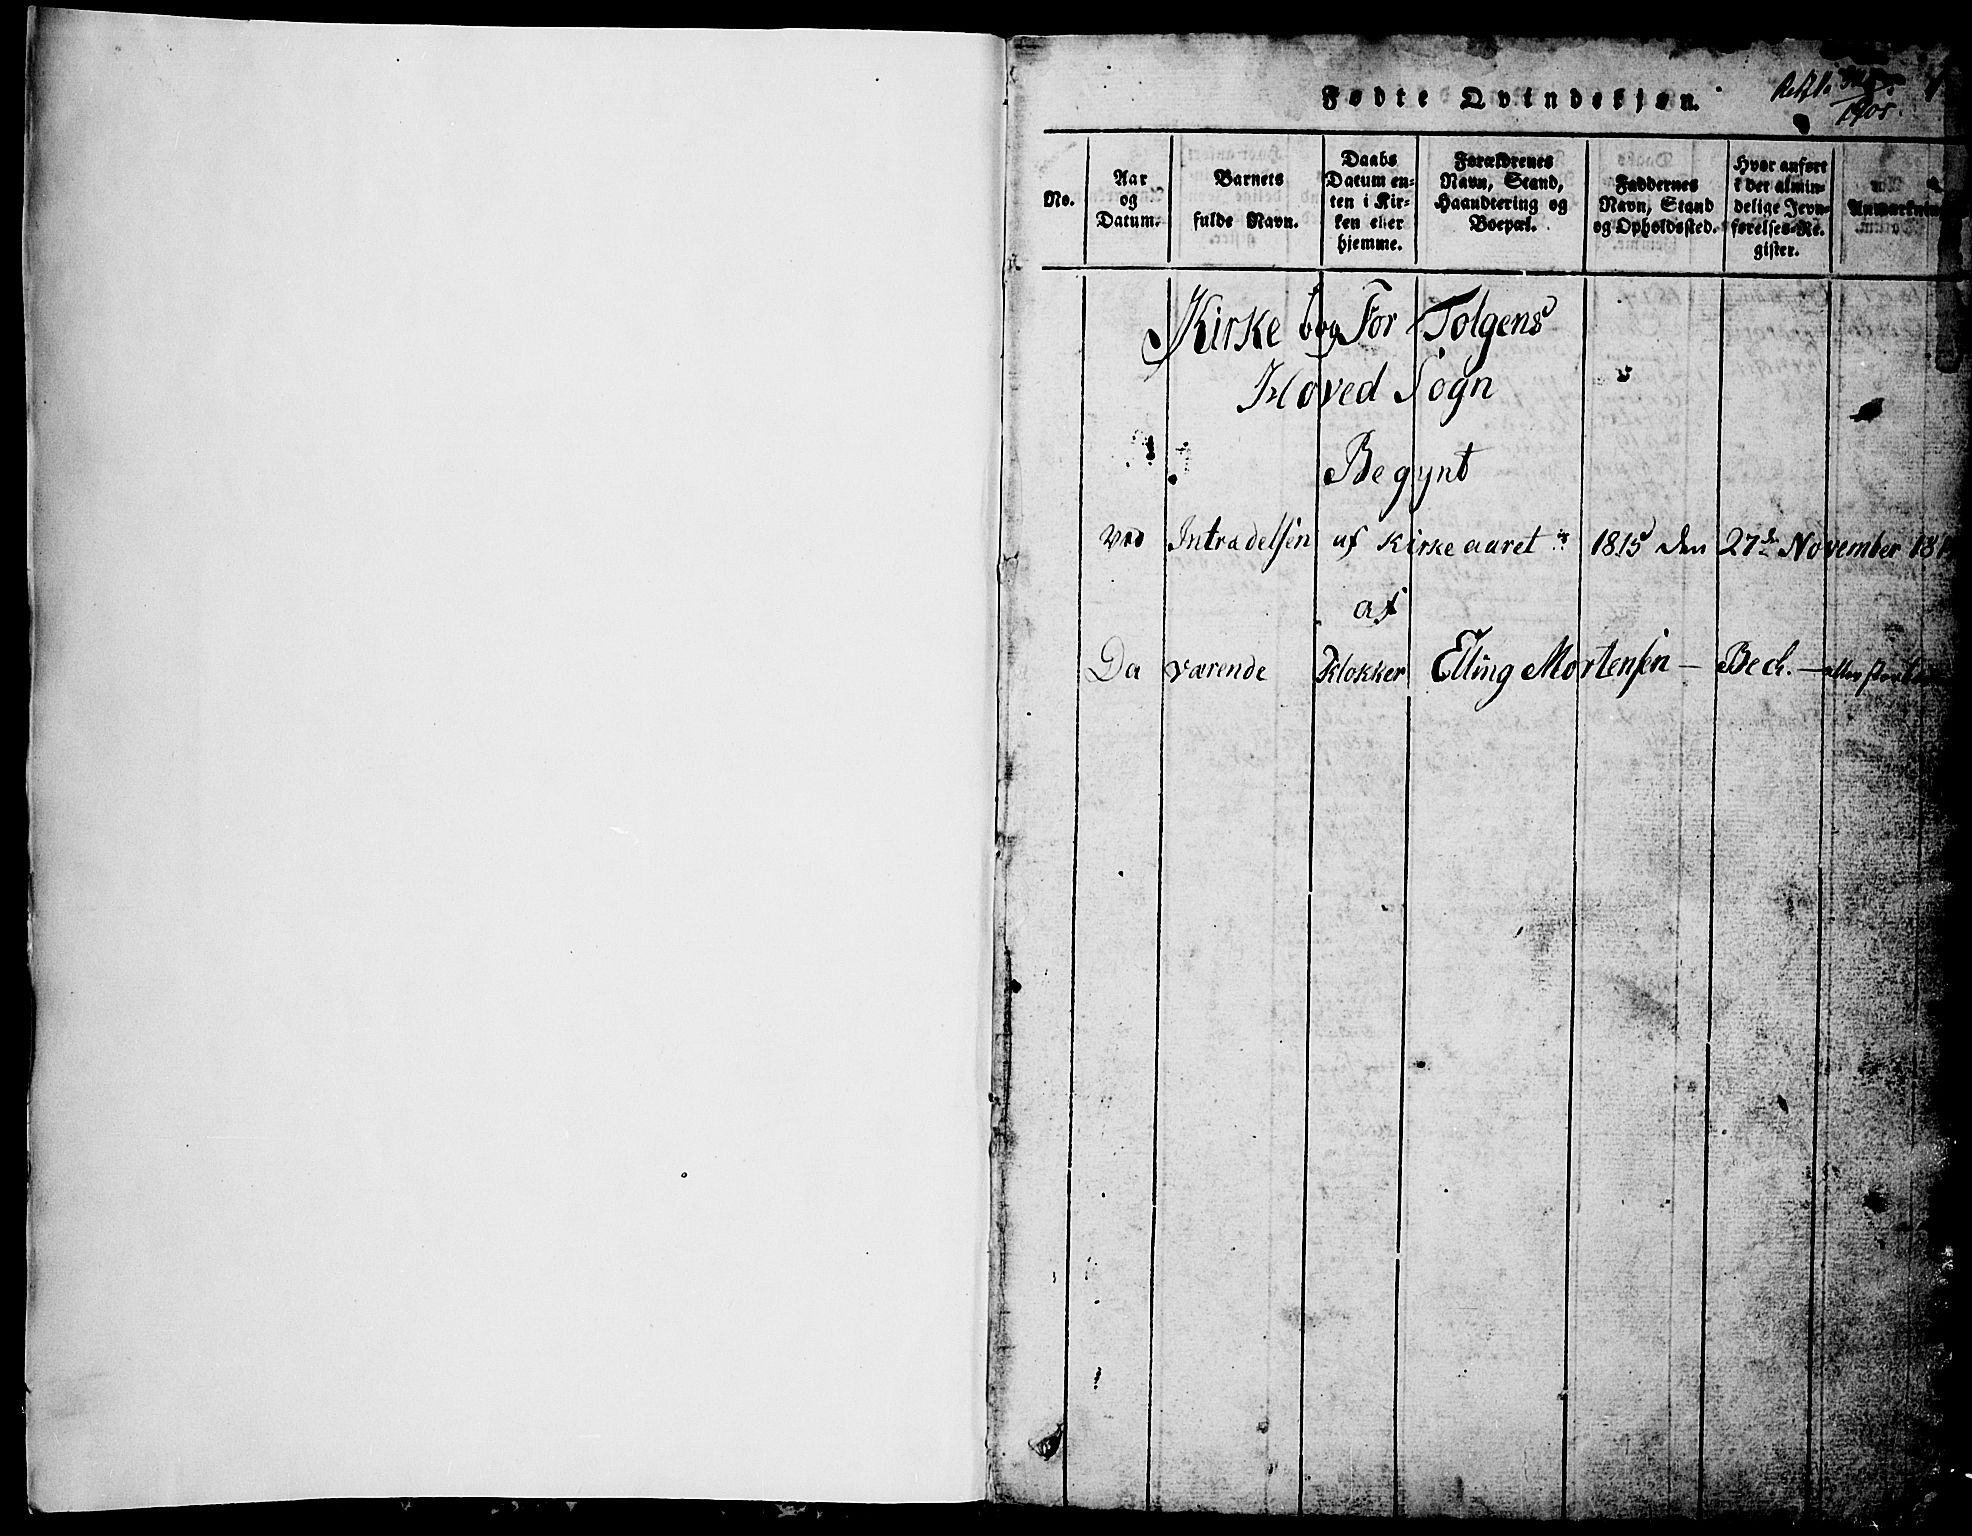 Fødte Qvindekjøn.
No.
Aar
og
Datum.
Barnets
fulde Navn.
Daabs
Datum en-
ten i Kir-
ken eller
hjemme.
Forældrenes
Navn, Stand,
Haandtering og
Boepæl.
Faddernes
Navn, Stand
og Opholdssted.
Hvor anført
i det almin-
delige Jevn-
førelses-Re-
gister.
Anmærknin
Kirke bog For Tolgens
Hoved Sogn
Begynt
ved Intradelsen af Kirke aaret 1815 den 27de November 181
af
Da værende Klokker Elling Mortensen – Beck. –